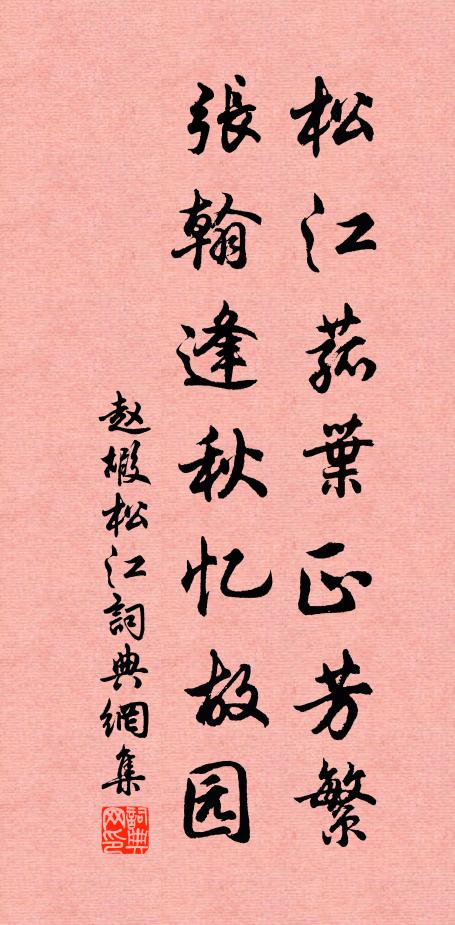 松江菰葉正芳繁
張翰逢秋忆故园
赵嘏松江詞典網集
詞典网印